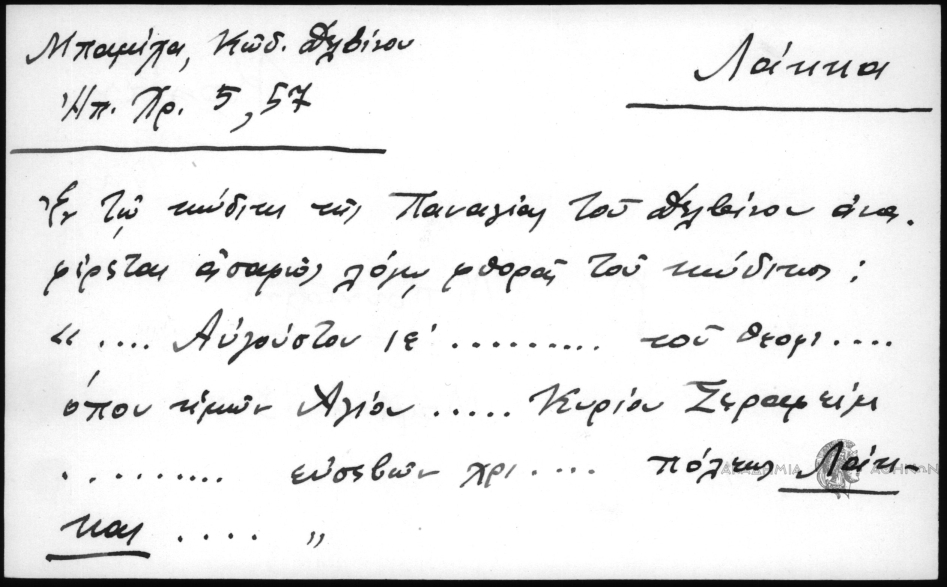 Μπαμίχα, Κώδ. Δελβίνου
Λάκκα
Ἠπ. Χρ. 5, 57
Ἐν τῷ κώδικι τῆς Παναγίας τοῦ Δελβίνου ἀνα-
φέρεται ἀσαφῶς λόγῳ φθορᾶς τοῦ κώδικος:
« .... Αὐγούστου ιε' .......... τοῦ θεοφι ....
ὅπου τιμῶν Ἁγίου ..... Κυρίου Σεραφείμ
.......... εὐσεβῶν χρι .... πόλεως Λάκ-
κας .... »
ΑΚΑΔΗΜΙΑ ΑΘΗΝΩΝ